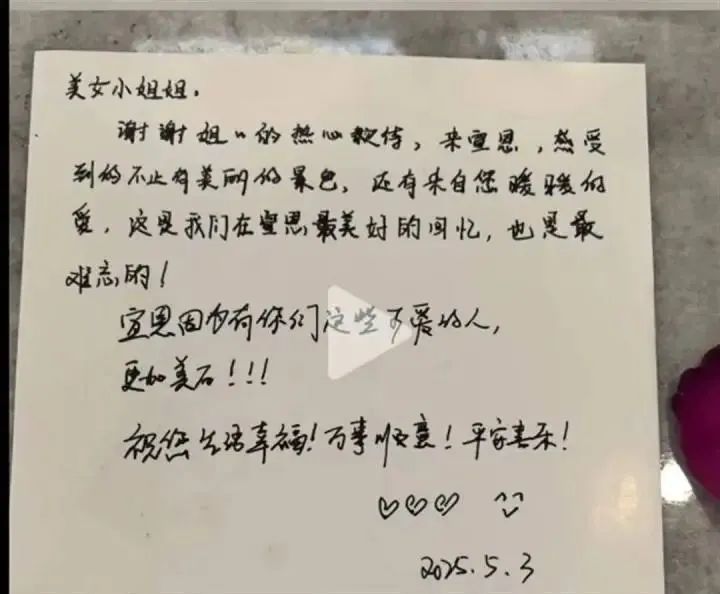 美女小姐姐.
谢谢姐〃的热心款待,来宣恩,感受
到的不止有美丽的景色,还有来自您暖暖的
爱,这是我们在宣恩最美好的回忆,也是最
难忘的!
宣恩因为有你们这些可爱的人,
更加美石!!!
祝您生活幸福!万事顺意!平安喜乐!
♡♡♡
2025.5.3